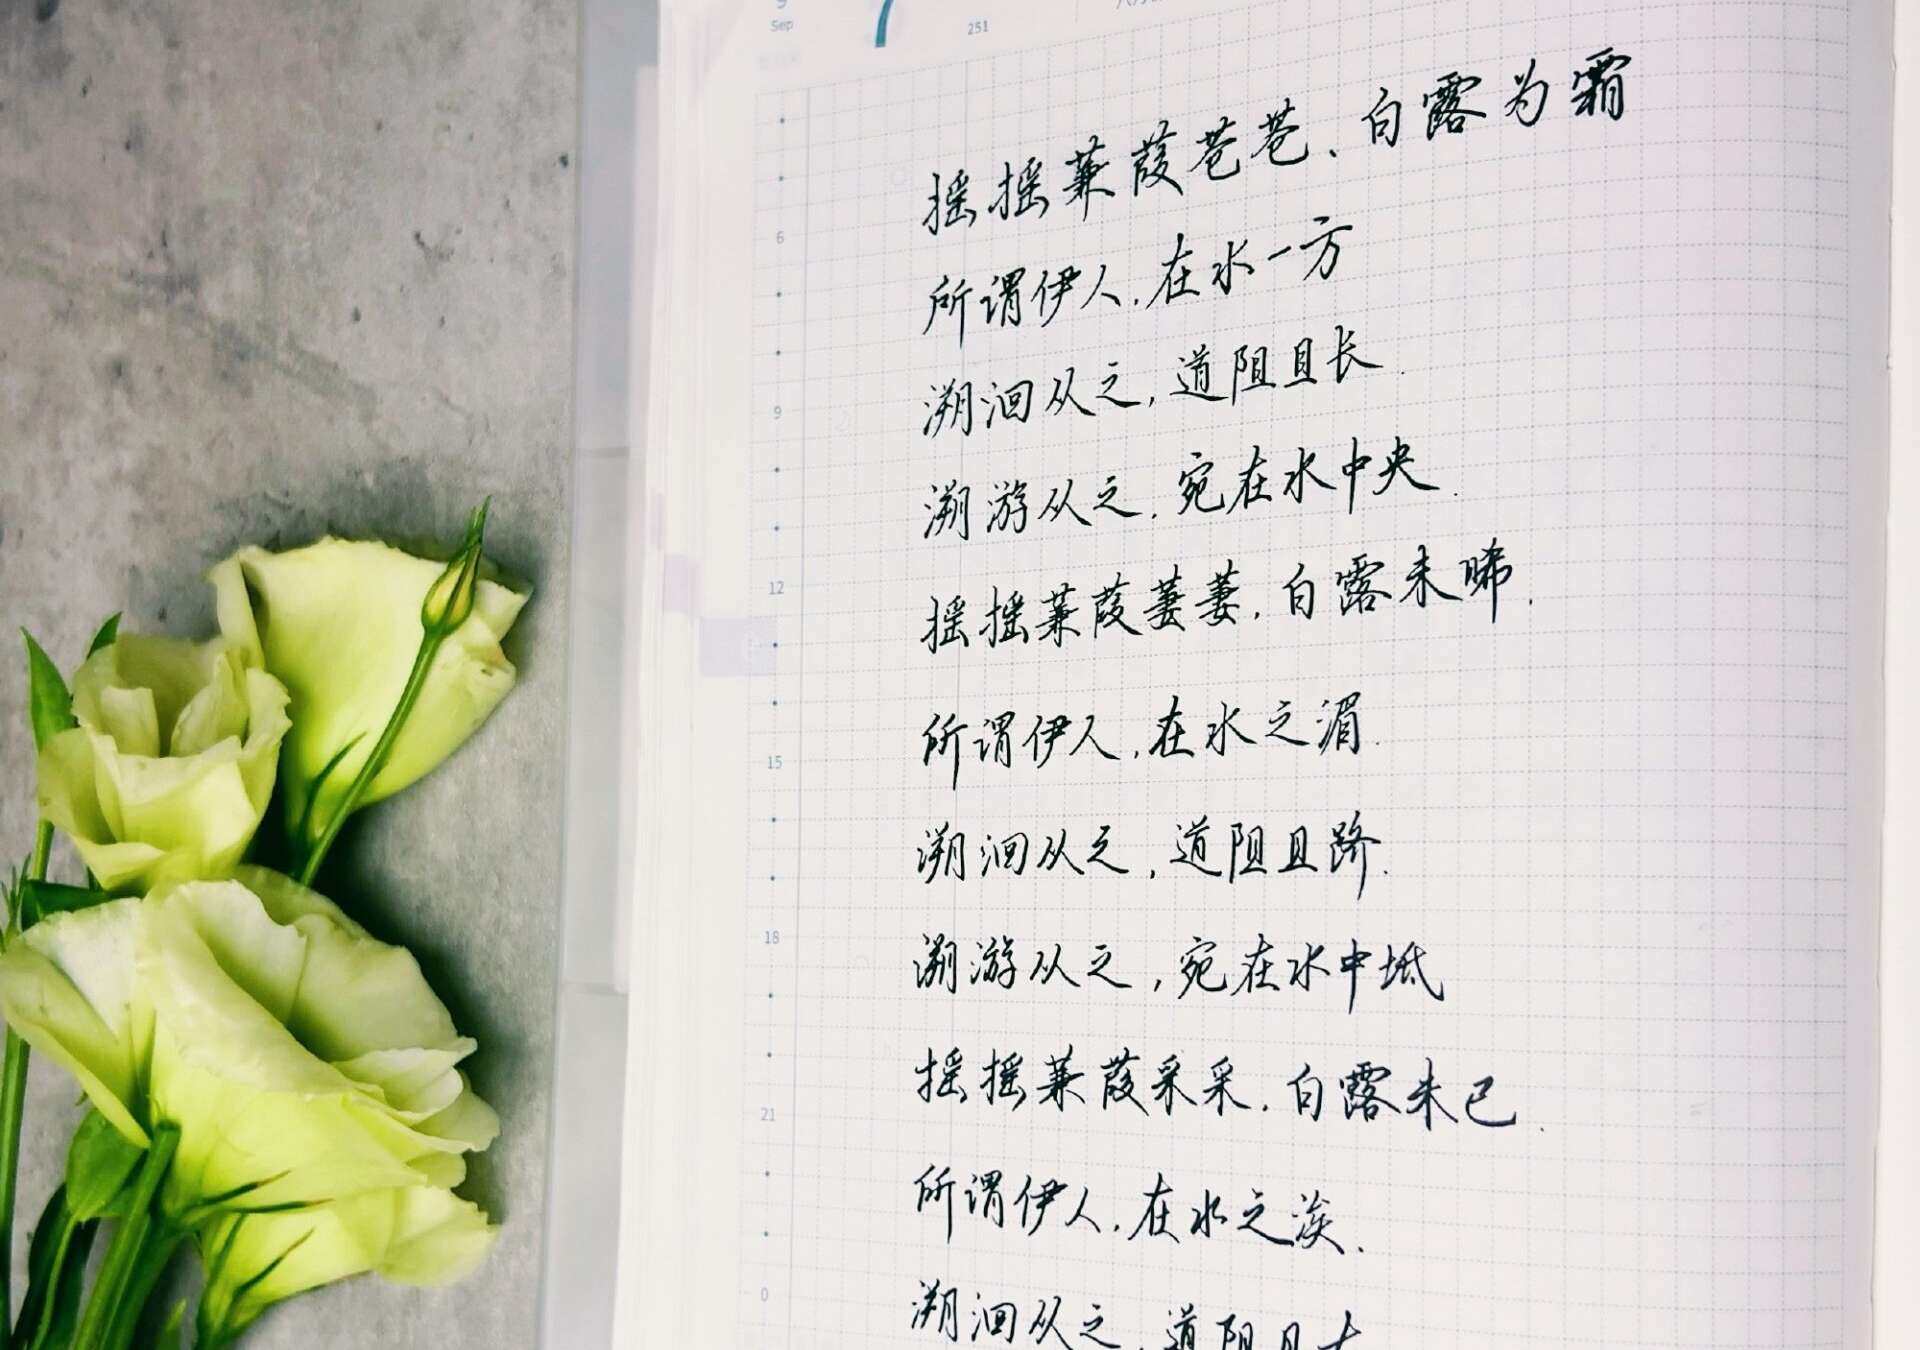 9
Sep
7
251
摇摇蒹葭苍苍、白露为霜
所谓伊人,在水一方
溯洄从之,道阻且长.
溯游从之.宛在水中央.
摇摇蒹葭萋萋,白露未晞.
所谓伊人,在水之湄.
溯洄从之,道阻且跻.
溯游从之,宛在水中坻
摇摇蒹葭采采.白露未已.
所谓伊人.在水之涘.
溯洄从之,道阻且右
6
9
12
15
18
21
0